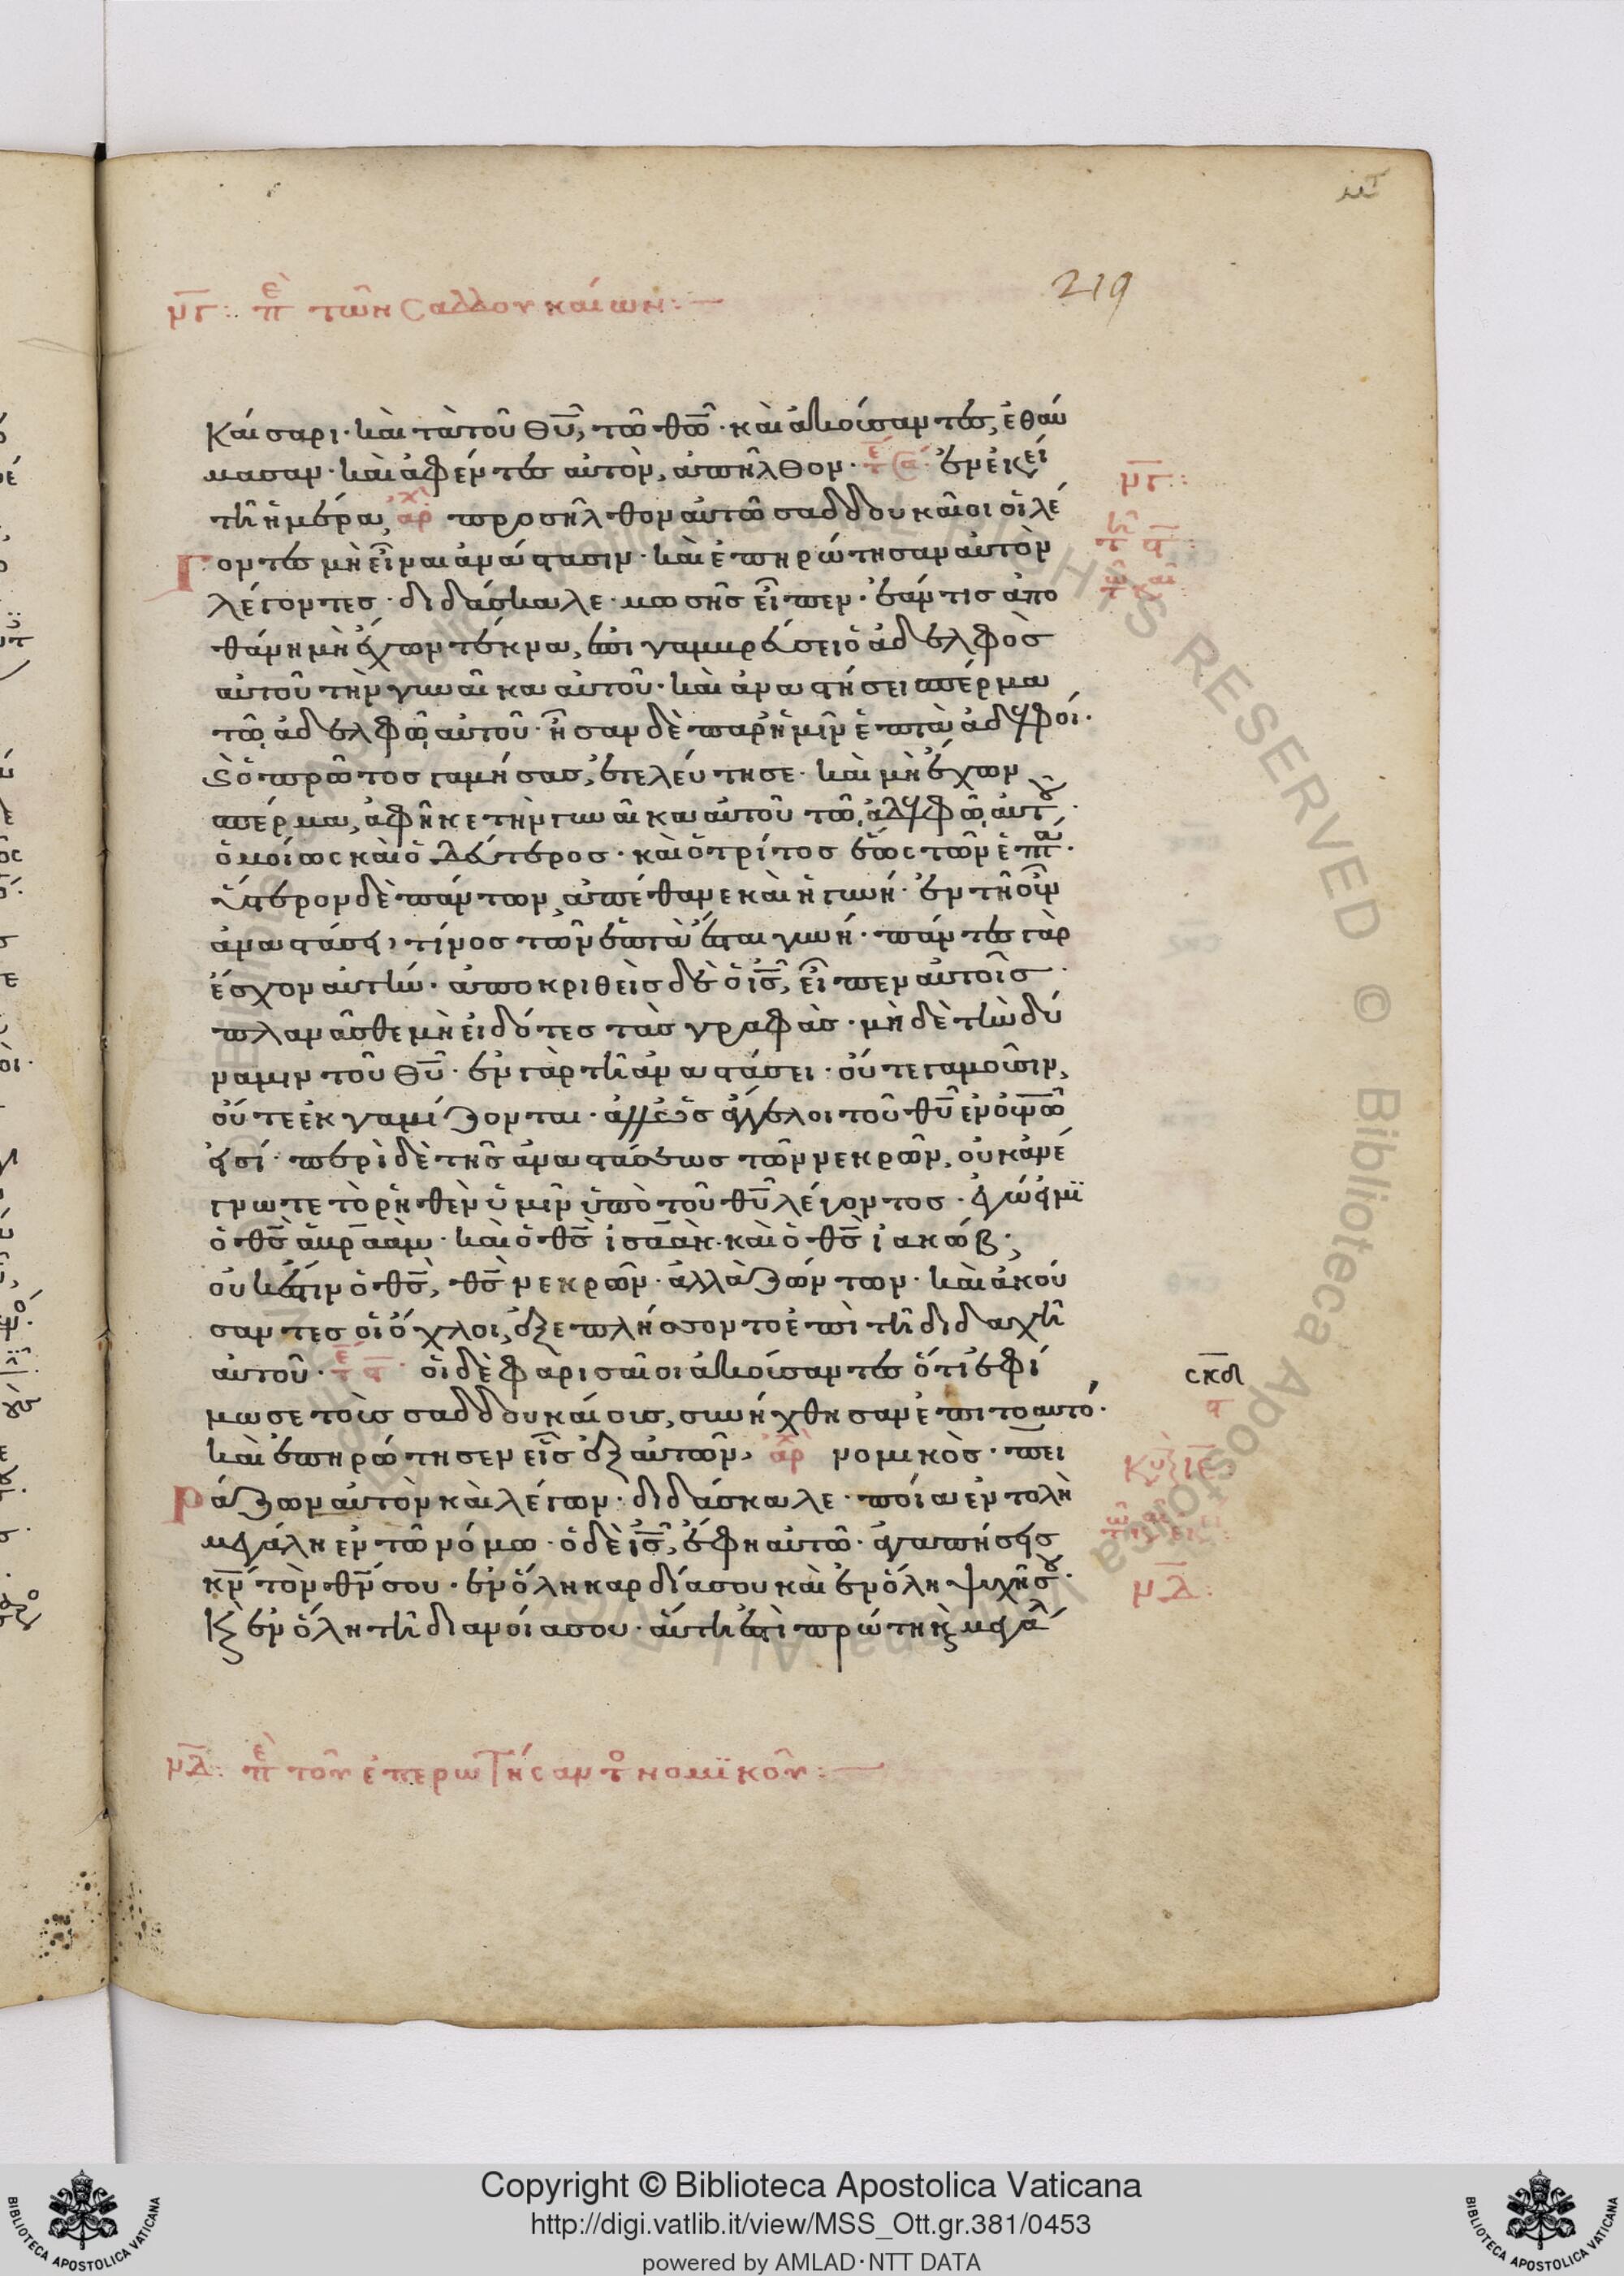 219
μγ: πε τῶν Σαδδουκαίων:—
Καίσαρι· καὶ τὰ τοῦ θυ, τῶ θω· καὶ ἀκούσαντες, ἐθαύ
μασαν· καὶ ἀφέντες αὐτὸν, ἀπῆλθον· ἐν ἐκεί
τῆ ἡμέρα, ἀρχ προσῆλθον αὐτῶ σαδδουκαῖοι οἱ λέ
Γοντες μὴ εἶναι ἀνάστασιν· καὶ ἐπηρώτησαν αὐτὸν
λέγοντες· διδάσκαλε· μωσῆς εἶπεν· ἐάν τις ἀπο
θάνη μὴ ἔχων τέκνα, ἐπιγαμβρεύσει ὁ ἀδελφὸς
αὐτοῦ τὴν γυναῖκα αὐτοῦ· καὶ ἀναστήσει σπέρμα
τῶ ἀδελφῶ αὐτοῦ· ἦσαν δὲ παρ' ἡμῖν ἑπτὰ ἀδελφοί·
καὶ ὁ πρῶτος γαμήσας, ἐτελεύτησε· καὶ μὴ ἔχων
σπέρμα, ἀφῆκε τὴν γυναῖκα αὐτοῦ τῶ ἀδελφῶ αὐτοῦ·
ὁμοίως καὶ ὁ δεύτερος· καὶ ὁ τρίτος ἕως τῶν ἑπτά·
ὕστερον δὲ πάντων, ἀπέθανε καὶ ἡ γυνή· ἐν τῆ οὖν
ἀναστάσει, τίνος τῶν ἑπτὰ ἔσται γυνή· πάντες γὰρ
ἔσχον αὐτήν· ἀποκριθεὶς δὲ ὁ ις, εἶπεν αὐτοῖς·
πλανᾶσθε μὴ εἰδότες τὰς γραφάς· μὴ δὲ τὴν δύ
ναμιν τοῦ θυ· ἐν γὰρ τῆ ἀναστάσει· οὔτε γαμοῦσιν,
οὔτε ἐκγαμίζονται· ἀλλ' ὡς ἄγγελοι τοῦ θυ ἐν οὐνω
εἰσί· περὶ δὲ τῆς ἀναστάσεως τῶν νεκρῶν, οὐκ ἀνέ
γνωτε τὸ ῥηθὲν ὑμῖν ὑπὸ τοῦ θυ λέγοντος· ἐγώ εἰμι
ὁ θς ἀβραὰμ· καὶ ὁ θς ἰσαὰκ· καὶ ὁ θς ἰακώβ·
οὐκ ἔστιν ὁ θς, θς νεκρῶν· ἀλλὰ ζώντων· καὶ ἀκού
σαντες οἱ ὄχλοι, ἐξεπλήσσοντο ἐπὶ τῆ διδαχῆ
αὐτοῦ· οἱ δὲ φαρισαῖοι ἀκούσαντες ὅτι ἐφί
μωσε τοὺς σαδδουκαίους, συνήχθησαν ἐπι το αὐτό·
καὶ ἐπηρώτησεν εἷς ἐξ αὐτῶν, ἀρχ νομικὸς· πει
Ράζων αὐτὸν καὶ λέγων· διδάσκαλε· ποία ἐντολὴ
μεγάλη ἐν τῶ νόμω· ὁ δὲ ις, ἔφη αὐτῶ· ἀγαπήσεις
κν τὸν θν σου· ἐν ὅλη καρδία σου καὶ ἐν ὅλη ψυχῆ σου·
καὶ ἐν ὅλη τῆ διανοία σου· αὕτη ἐστὶ πρώτη καὶ μεγάλ
μγ:
σκδ
μδ:
μδ: πε τοῦ ἐπερωτήσαντο νομϊκοῦ:—
Copyright © Biblioteca Apostolica Vaticana
http://digi.vatlib.it/view/MSS_Ott.gr.381/0453
powered by AMLAD·NTT DATA
BIBLIOTECA APOSTOLICA VATICANA
BIBLIOTECA APOSTOLICA VATICANA